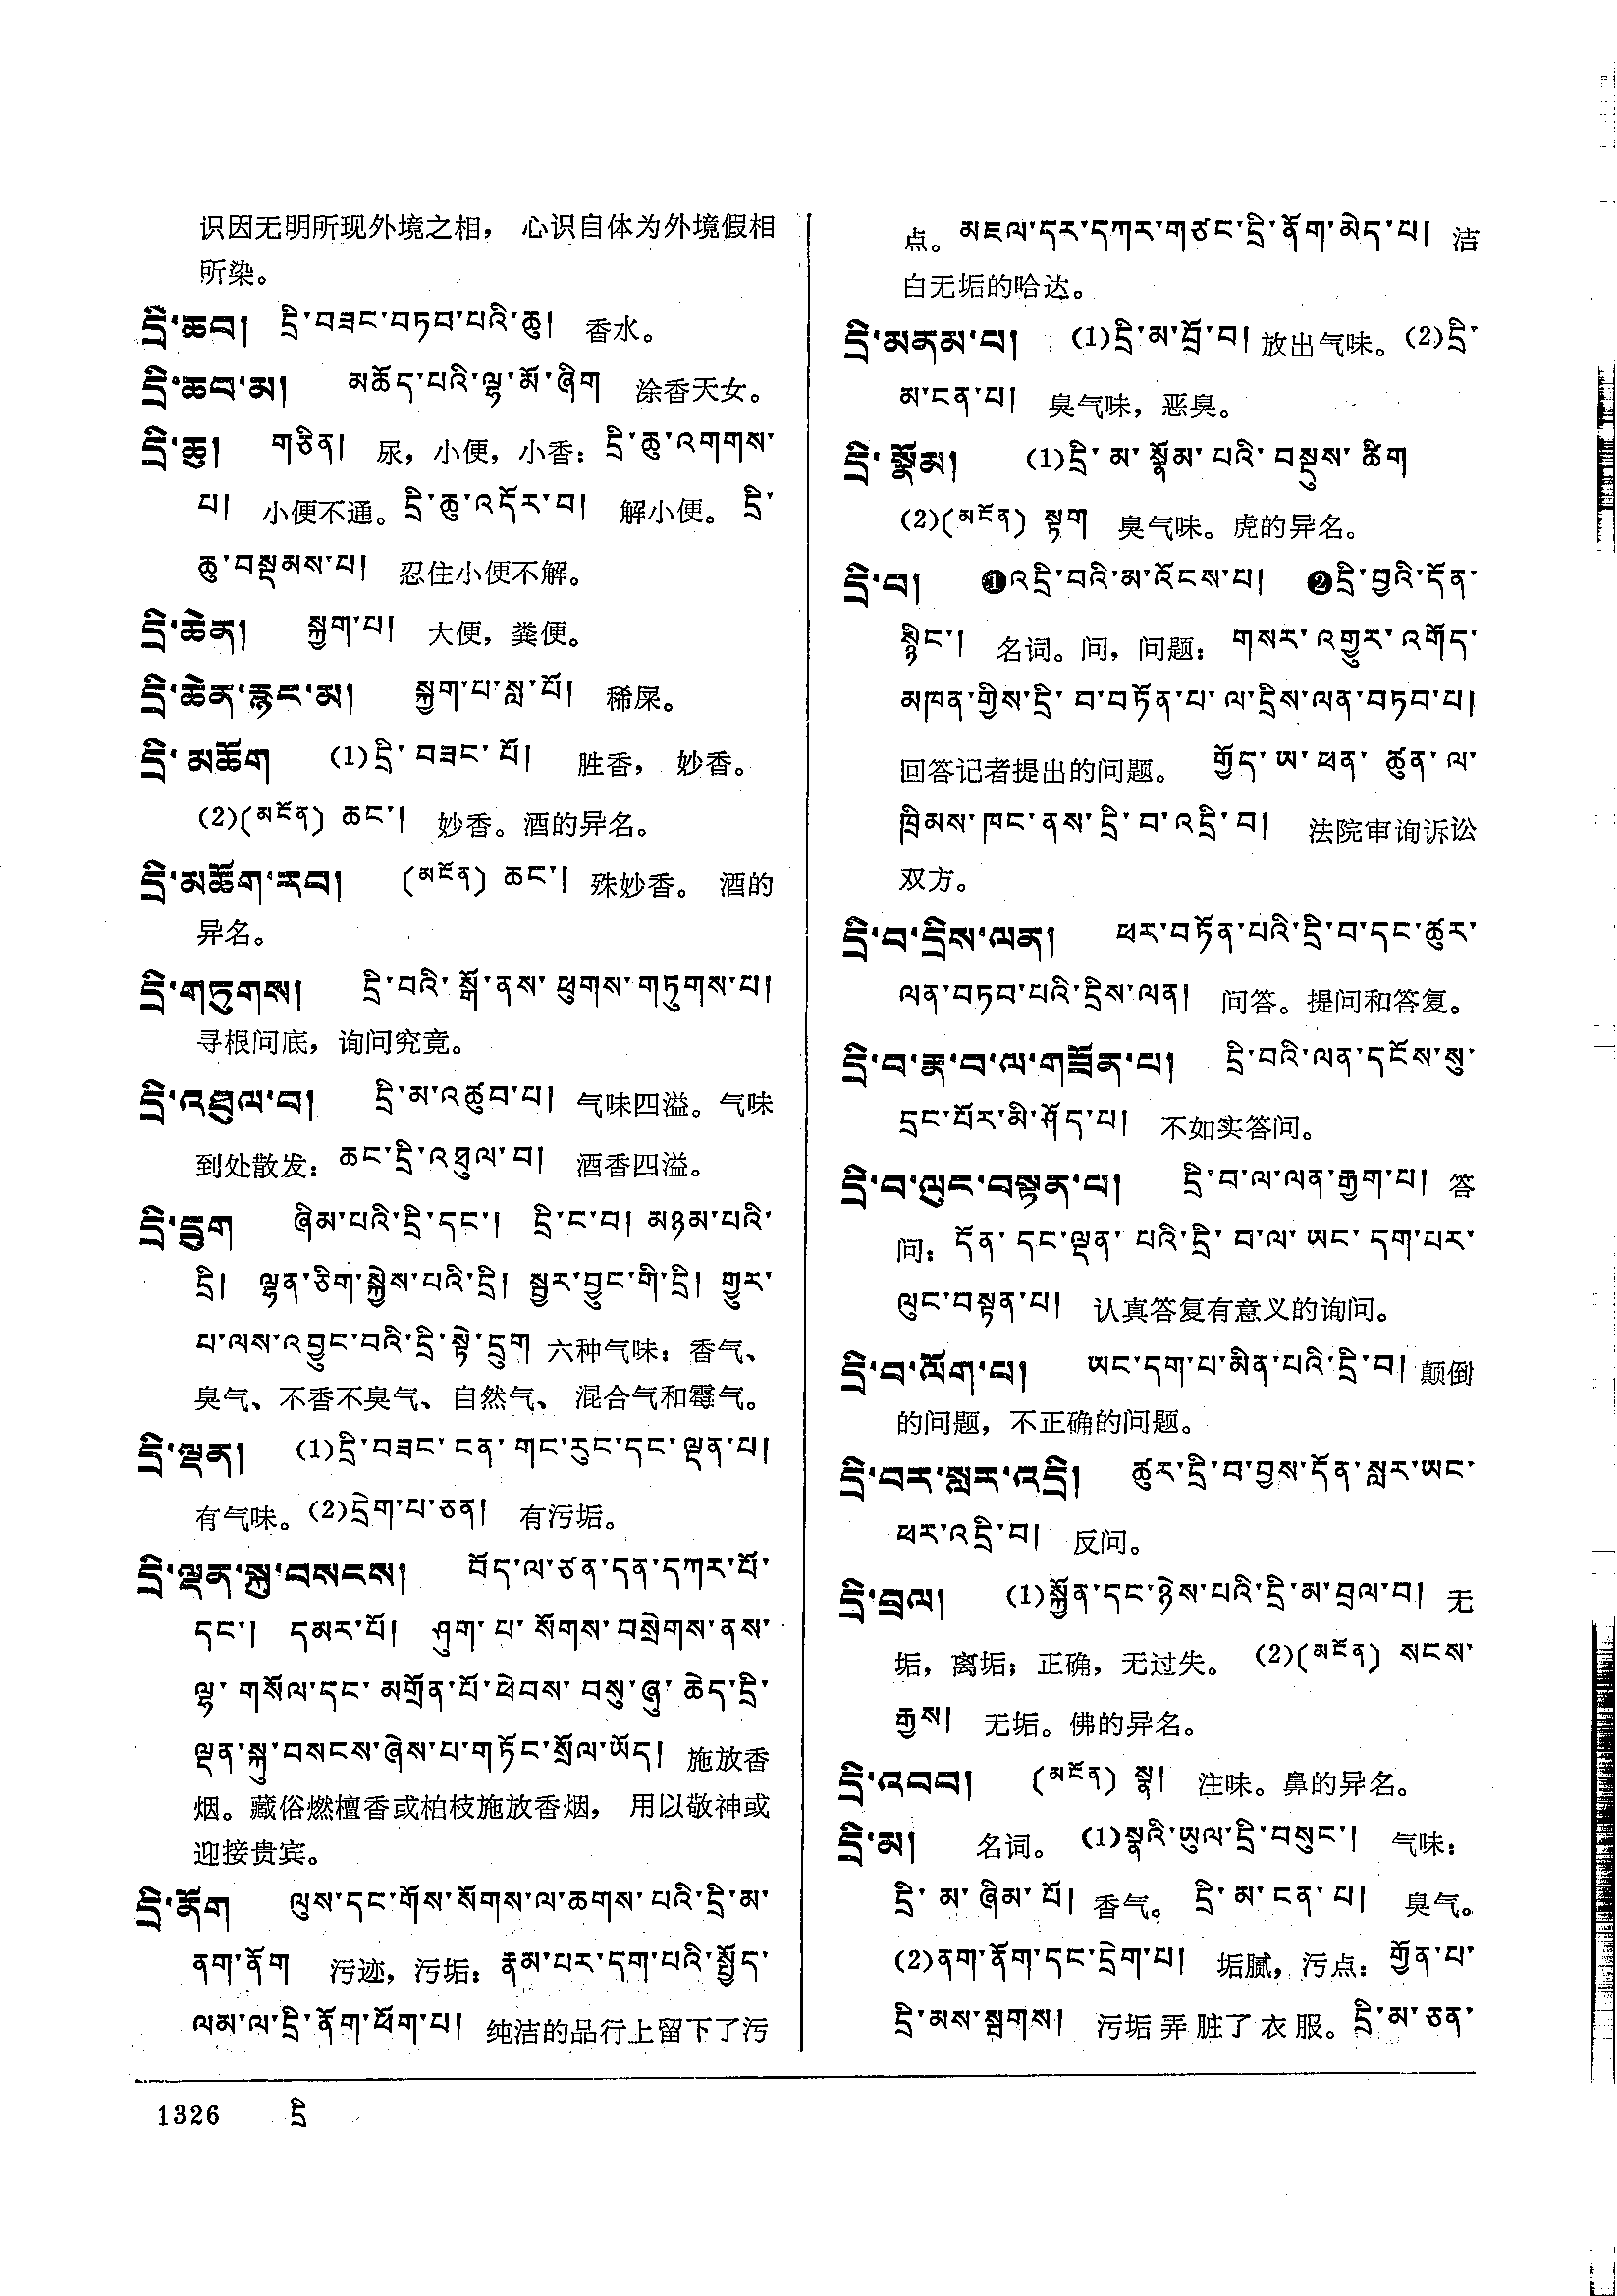 识因无明所现外境之相， 心识自体为外境假相
所染。
དྲི་ཆབ། དྲི་བཟང་བཏབ་པའི་ཆུ། 香水。
དྲི་ཆབ་མ། མཆོད་པའི་ལྷ་མོ་ཞིག 涂香天女。
དྲི་ཆུ། གཅིན། 尿，小便，小香：དྲི་ཆུ་འགགས་
པ། 小便不通。དྲི་ཆུ་འདོར་བ། 解小便。 དྲི་
ཆུ་བསྡམས་པ། 忍住小便不解。
དྲི་ཆེན། སྐྱག་པ། 大便，粪便。
དྲི་ཆེན་རྙང་མ། སྐྱག་པ་སླ་པོ། 稀屎。
དྲི་མཆོག (1)དྲི་བཟང་པོ། 胜香， 妙香。
(2)(མངོན) ཆང་། 妙香。酒的异名。
དྲི་མཆོག་རབ། (མངོན) ཆང་། 殊妙香。 酒的
异名。
དྲི་གཏུགས། དྲི་བའི་སྒོ་ནས་ཕུགས་གཏུགས་པ།
寻根问底，询问究竟。
དྲི་འཐུལ་བ། དྲི་མ་འཚུབ་པ། 气味四溢。气味
到处散发：ཆང་དྲི་འཐུལ་བ། 酒香四溢。
དྲི་དྲུག ཞིམ་པའི་དྲི་དང་། དྲི་ང་བ། མཉམ་པའི་
དྲི། ལྷན་ཅིག་སྐྱེས་པའི་དྲི། སྦྱར་བྱུང་གི་དྲི། གྱུར་
པ་ལས་འབྱུང་བའི་དྲི་སྟེ་དྲུག 六种气味：香气、
臭气、不香不臭气、自然气、 混合气和霉气。
དྲི་ལྡན། (1)དྲི་བཟང་ངན་གང་རུང་དང་ལྡན་པ།
有气味。(2)དྲེག་པ་ཅན། 有污垢。
དྲི་ལྡན་སྐུ་བསངས། བོད་ལ་ཙན་དན་དཀར་པོ་
དང་། དམར་པོ། ཤུག་པ་སོགས་བསྲེགས་ནས་
ལྷ་གསོལ་དང་མགྲོན་པོ་ཕེབས་བསུ་ཞུ་ཆེད་དྲི་
ལྡན་སྐུ་བསངས་ཞེས་པ་གཏོང་སྲོལ་ཡོད། 施放香
烟。藏俗燃檀香或柏枝施放香烟， 用以敬神或
迎接贵宾。
དྲི་ནོག ལུས་དང་གོས་སོགས་ལ་ཆགས་པའི་དྲི་མ་
ནག་ནོག 污迹，污垢：རྣམ་པར་དག་པའི་སྤྱོད་
ལམ་ལ་དྲི་ནོག་ཕོག་པ། 纯洁的品行上留下了污
点。མཇལ་དར་དཀར་གཙང་དྲི་ནོག་མེད་པ། 洁
白无垢的哈达。
དྲི་མནམ་པ། (1)དྲི་མ་བྲོ་བ། 放出气味。(2)དྲི་
མ་ངན་པ། 臭气味，恶臭。
དྲི་སྣོམ། (1)དྲི་མ་སྣོམ་པའི་བསྡུས་ཚིག
(2)(མངོན) སྟག 臭气味。虎的异名。
དྲི་བ། ❶འདྲི་བའི་མ་འོངས་པ། ❷དྲི་བྱའི་དོན་
སྙིང་། 名词。问，问题：གསར་འགྱུར་འགོད་
མཁན་གྱིས་དྲི་བ་བཏོན་པ་ལ་དྲིས་ལན་བཏབ་པ།
回答记者提出的问题。 གྱོད་ཨ་ཕན་ཚུན་ལ་
ཁྲིམས་ཁང་ནས་དྲི་བ་འདྲི་བ། 法院审询诉讼
双方。
དྲི་བ་དྲིས་ལན། ཕར་བཏོན་པའི་དྲི་བ་དང་ཚུར་
ལན་བཏབ་པའི་དྲིས་ལན། 问答。提问和答复。
དྲི་བ་རྣ་བ་ལ་གཟོན་པ། དྲི་བའི་ལན་དངོས་སུ་
དྲང་པོར་མི་ཤོད་པ། 不如实答问。
དྲི་བ་ལུང་བསྟན་པ། དྲི་བ་ལ་ལན་རྒྱག་པ། 答
问：དོན་དང་ལྡན་པའི་དྲི་བ་ལ་ཡང་དག་པར་
ལུང་བསྟན་པ། 认真答复有意义的询问。
དྲི་བ་ལོག་པ། ཡང་དག་པ་མིན་པའི་དྲི་བ། 颠倒
的问题，不正确的问题。
དྲི་བར་སླར་འདྲི། ཚུར་དྲི་བ་བྱས་དོན་སླར་ཡང་
ཕར་འདྲི་བ། 反问。
དྲི་བྲལ། (1)སྐྱོན་དང་ཉེས་པའི་དྲི་མ་བྲལ་བ། 无
垢，离垢；正确，无过失。 (2)(མངོན) སངས་
རྒྱས། 无垢。佛的异名。
དྲི་འབབ། (མངོན) སྣ། 注味。鼻的异名。
དྲི་མ། 名词。 (1)སྣའི་ཡུལ་དྲི་བསུང་། 气味：
དྲི་མ་ཞིམ་པོ། 香气。 དྲི་མ་ངན་པ། 臭气。
(2)ནག་ནོག་དང་དྲེག་པ། 垢腻，污点：གྱོན་པ་
དྲི་མས་སྦགས། 污垢弄脏了衣服。དྲི་མ་ཅན་
1326 དྲི